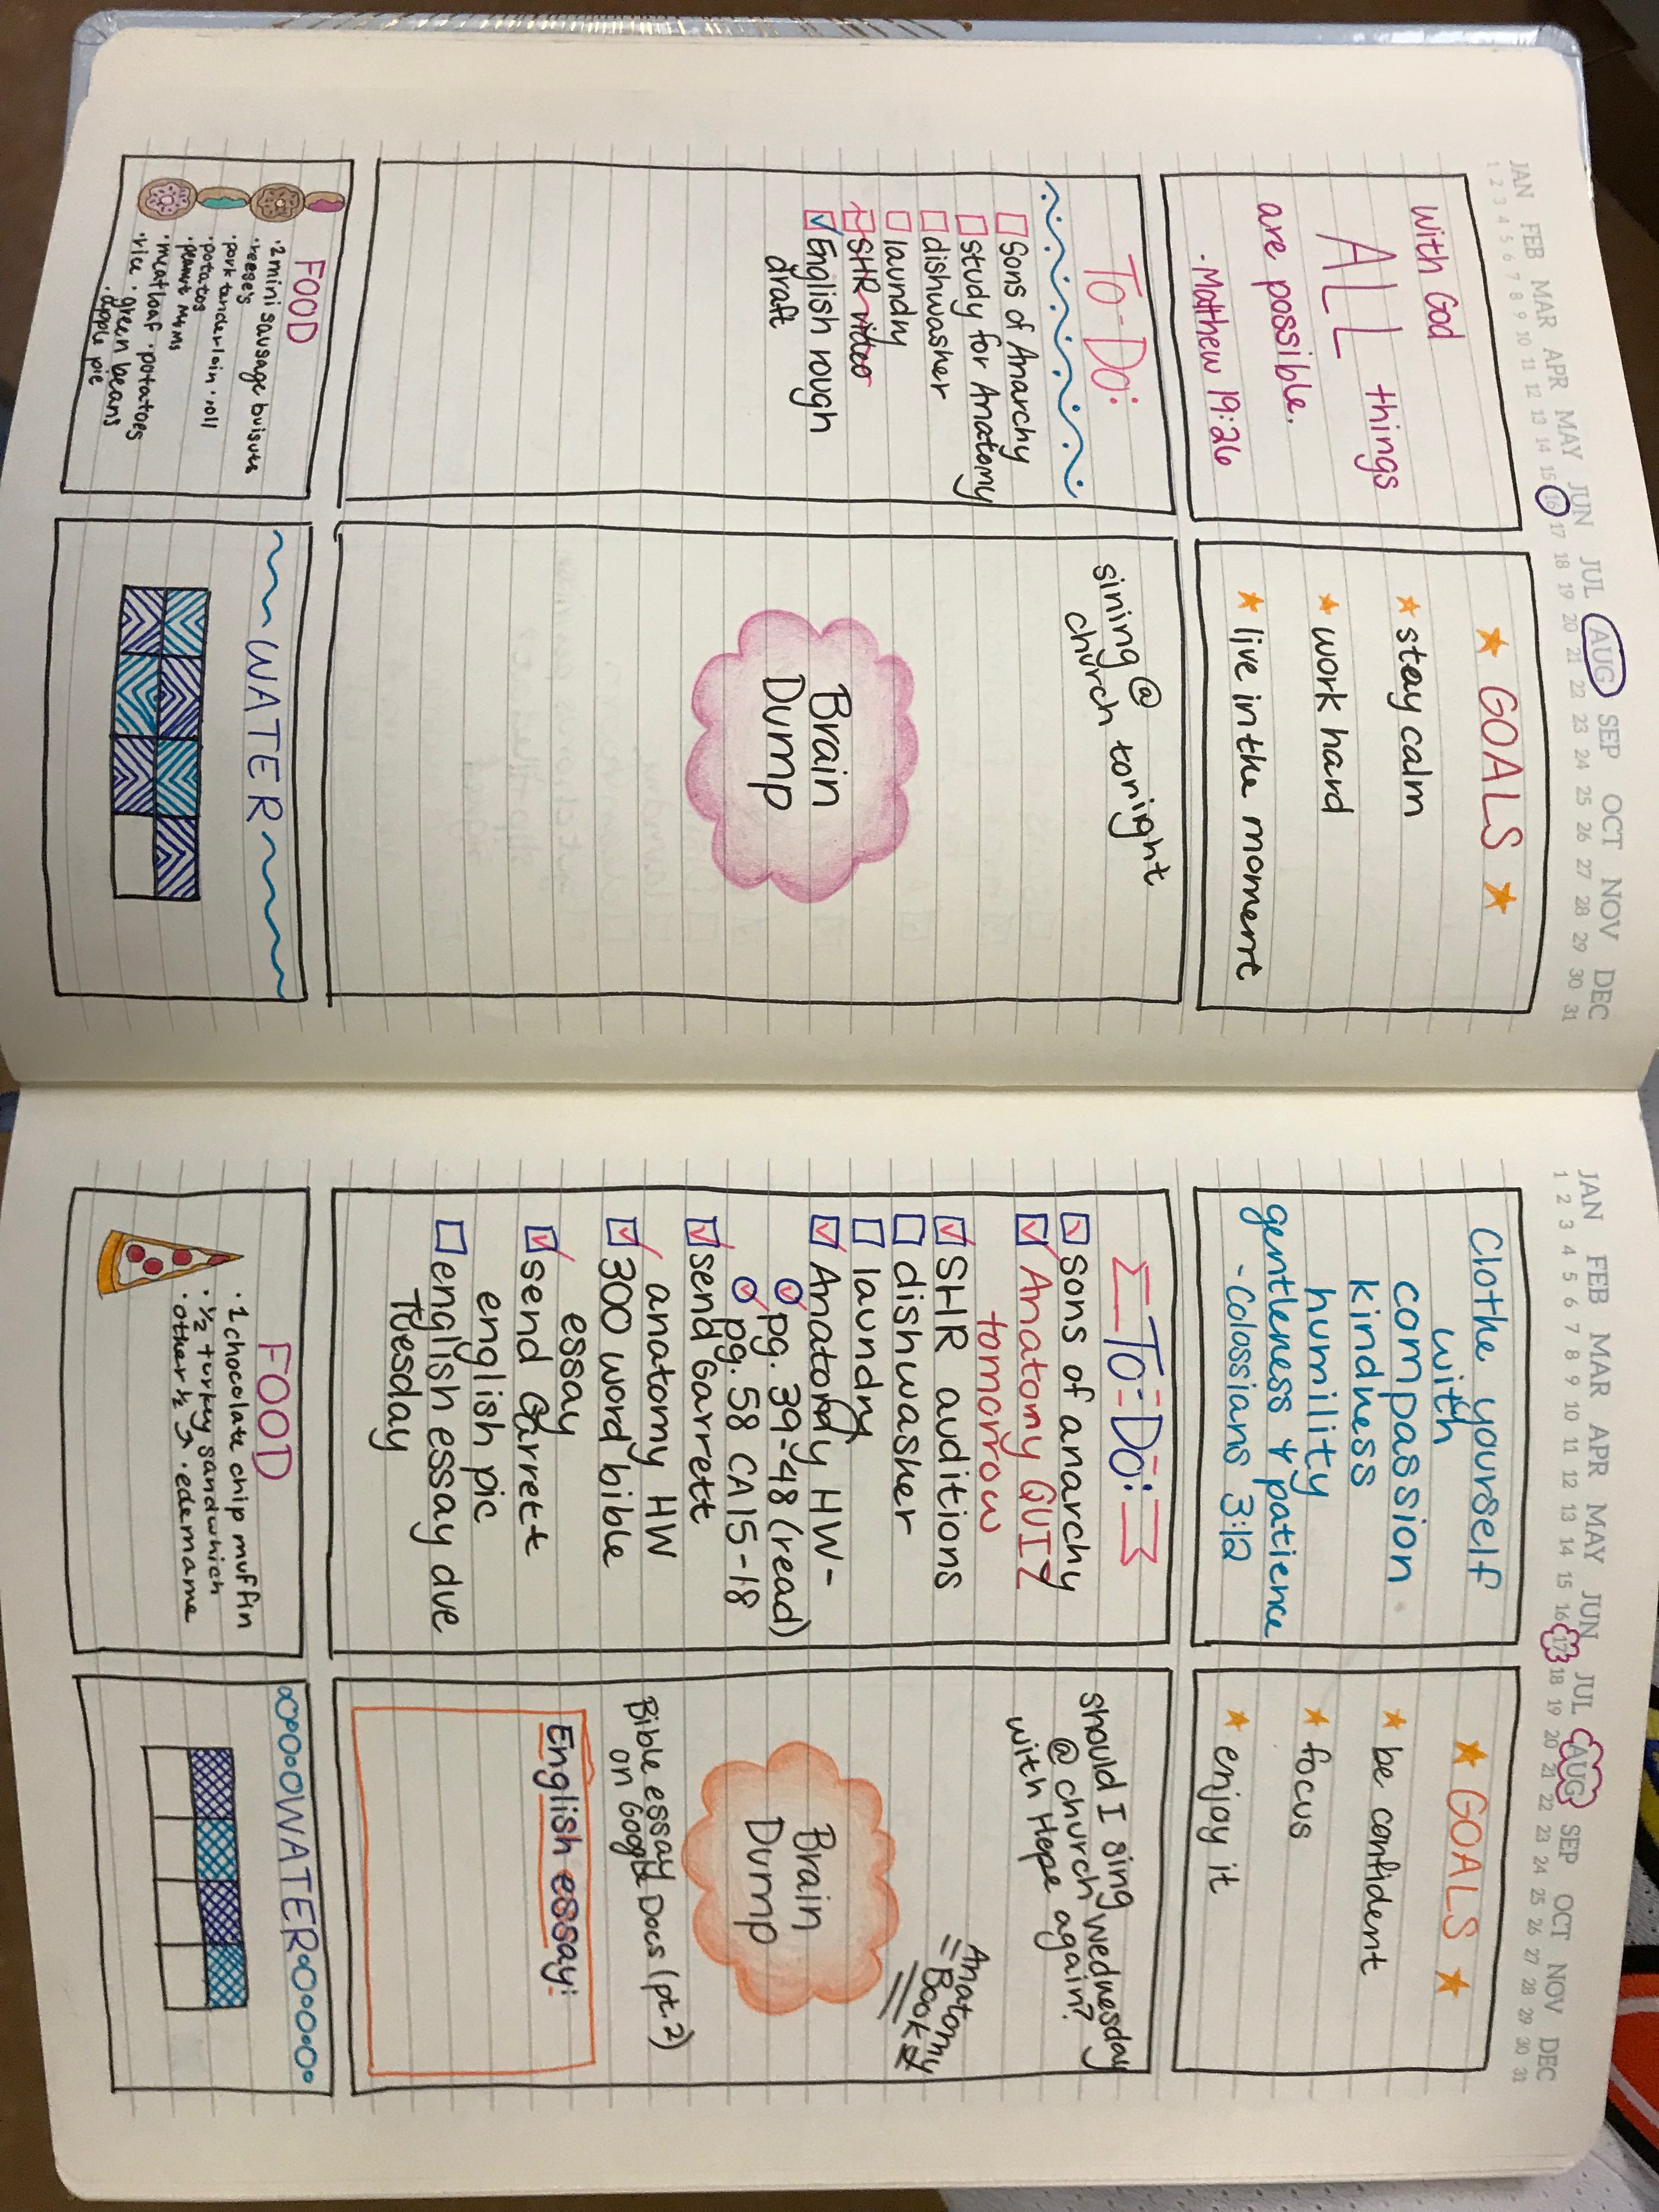 JAN FEB MAR APR MAY JUN JUL AUG SEP OCT NOV DEC
1 2 3 4 5 6 7 8 9 10 11 12 13 14 15 16 17 18 19 20 21 22 23 24 25 26 27 28 29 30 31
with God
ALL things
are possible.
-Matthew 19:26
GOALS
stay calm
work hard
live in the moment
To-Do:
Sons of Anarchy
study for Anatomy
dishwasher
laundry
SHR video
English rough
draft
sining @
church tonight
Brain
Dump
FOOD
·2 mini sausage buisuts
·reese's
·pork tenderloin ·roll
·potatos
·peanut m&ms
·meatloaf ·potatoes
·rice ·green beans
·apple pie
WATER
JAN FEB MAR APR MAY JUN JUL AUG SEP OCT NOV DEC
1 2 3 4 5 6 7 8 9 10 11 12 13 14 15 16 17 18 19 20 21 22 23 24 25 26 27 28 29 30 31
Clothe yourself
with
compassion
kindness
humility
gentleness & patience
-Colossians 3:12
GOALS
be confident
focus
enjoy it
To-Do:
sons of anarchy
Anatomy QUIZ
tomorrow
SHR auditions
dishwasher
laundry
Anatomy HW-
pg. 39-48 (read)
pg. 58 CA 15-18
send Garrett
anatomy HW
300 word bible
essay
send Garrett
english pic
english essay due
Tuesday
should I sing wednesday
@ church
with Hope again?
Anatomy
Book
Brain
Dump
Bible essay
on Google Docs (pt.2)
English essay:
FOOD
·1 chocolate chip muffin
·1/2 turkey sandwhich
·other 1/2 ·edemame
WATER